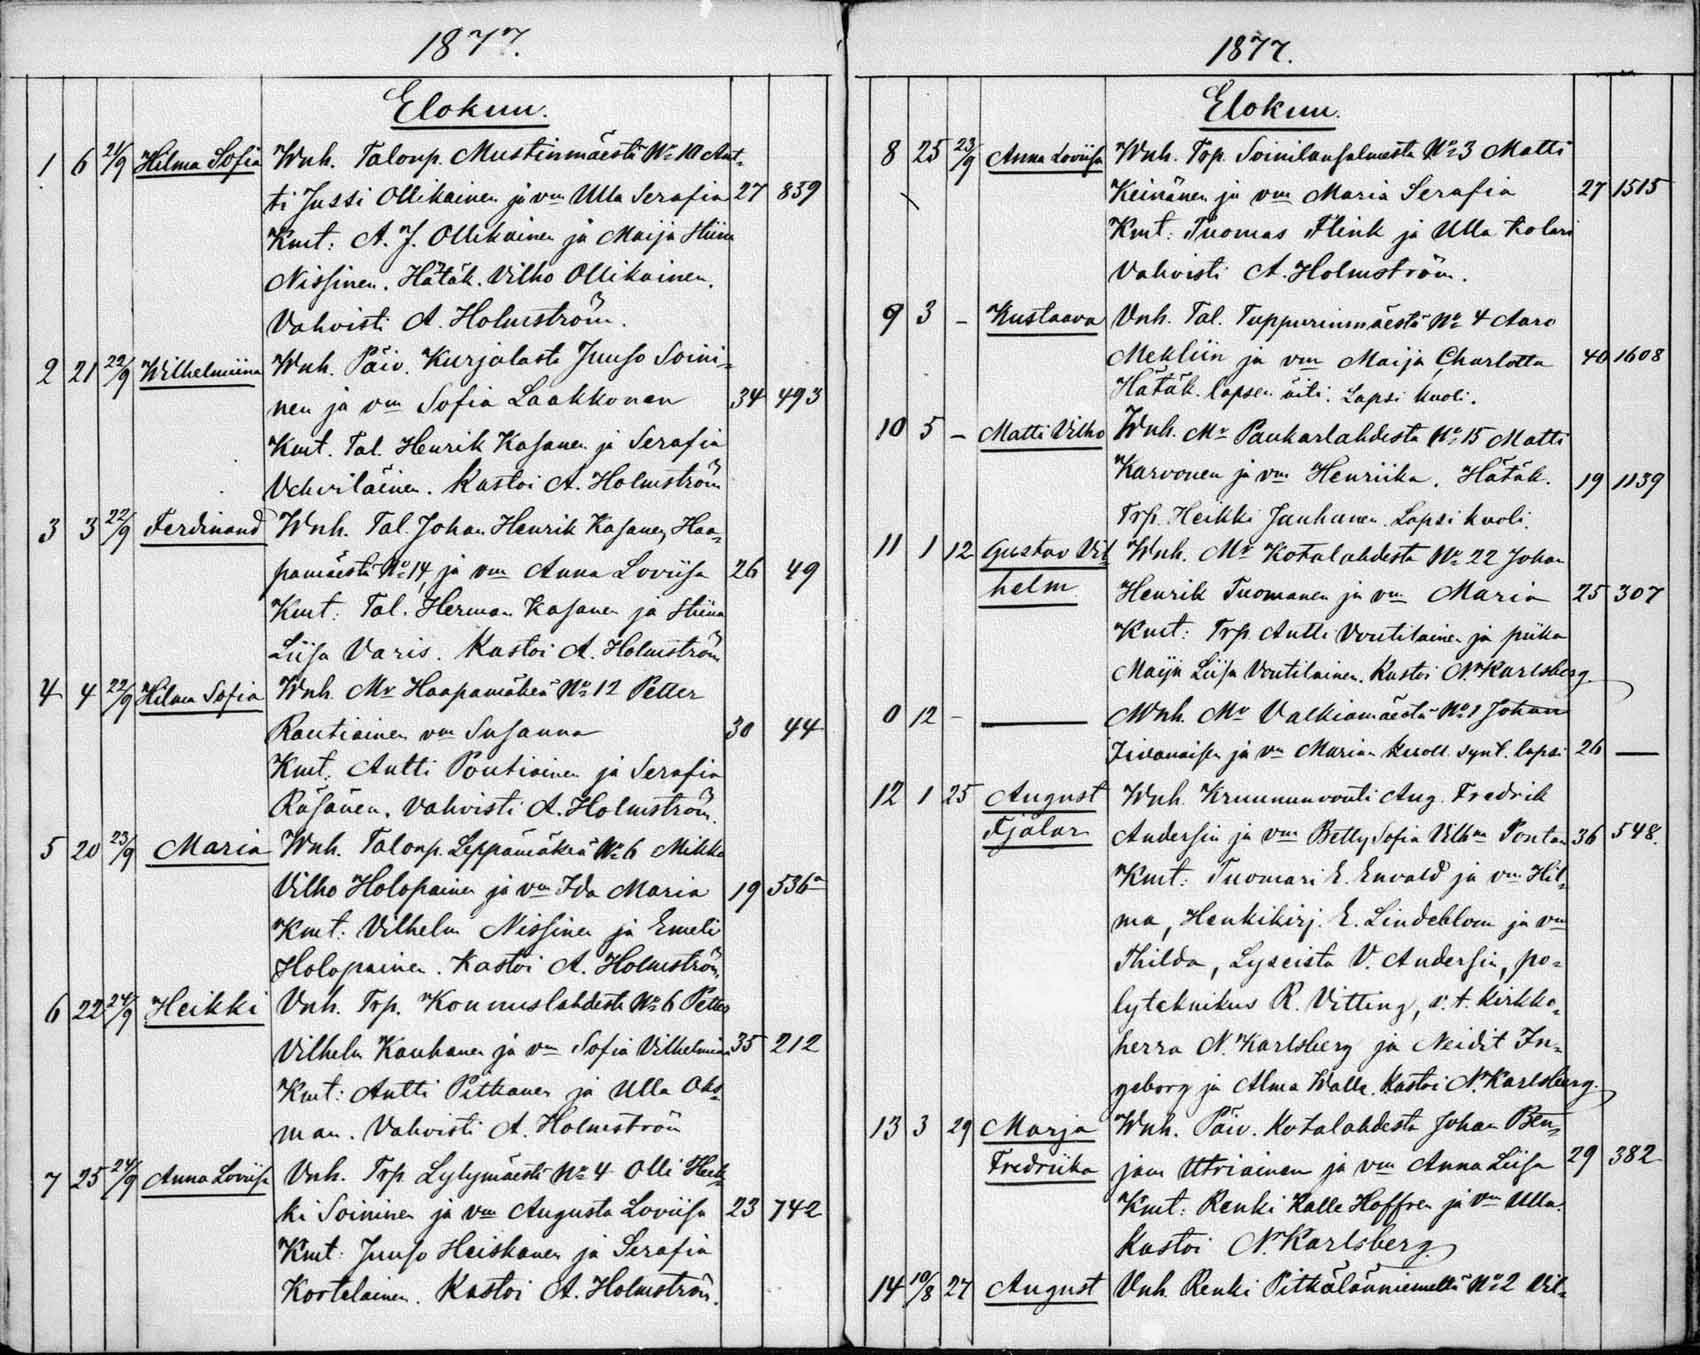 1877.
Elokuu.
1 6 21/9 Hilma Sofia Wnh. Talonp. Mustinmäestä No 10 Ant-
ti Jussi Ollikainen ja vm Ulla Serafia 27 839
Kmt: A. J. Ollikainen ja Maija Stiina
Nissinen. Hätäk. Vilho Ollikainen.
Vahvisti A. Holmström.
2 21 22/9 Wilhelmiina Wnh. Päiv. Kurjalasta Juuso Soini-
nen ja vm Sofia Laakkonen 34 493
Kmt. Tal. Henrik Kasanen ja Serafia
Vehviläinen. Kastoi A. Holmström
3 3 22/9 Ferdinand Wnh. Tal. Johan Henrik Kasanen, Haa-
pamäestä No 14, ja vm Anna Loviisa 26 49
Kmt: Tal. Herman Kasanen ja Stiina
Liisa Varis. Kastoi A. Holmström
4 4 22/9 Hilma Sofia Wnh. Mr Haapamäkeä No 12 Petter
Rautiainen vm Susanna 30 44
Kmt. Antti Poutiainen ja Serafia
Räsänen. Vahvisti A. Holmström.
5 20 23/9 Maria Wnh. Talonp. Leppämäkeä No 6 Mikko
Vilho Holopainen ja vm Ida Maria 19 536a
Kmt. Vilhelm Nissinen ja Emeli
Holopainen. Kastoi A. Holmström.
6 22 24/9 Heikki Vnh. Trp. Konnuslahdesta No 6 Petter
Vilhelm Kauhanen ja vm Sofia Vilhelmiina 35 212
Kmt: Antti Pitkanen ja Ulla Oks-
man. Vahvisti A. Holmström
7 25 24/9 Anna Loviisa Vnh. Trp. Lylymäestä No 4 Olli Heik-
ki Soininen ja vm Augusta Loviisa 23 742
Kmt: Juuso Heiskanen ja Serafia
Kortelainen. Kastoi A. Holmström.
1877.
Elokuu.
8 25 23/9 Anna Loviisa Wnh. Trp. Soinilansalmesta No 3 Matti
Keinänen ja vm Maria Serafia 27 1515
Kmt: Tuomas Flink ja Ulla Kolari
Vahvisti A. Holmström.
9 3 - Kustaava Vnh. Tal. Tuppurinmäestä No 4 Aaro
Mekliin ja vm Maija Charlotta 40 1608
Hätäk. lapsen äiti. Lapsi kuoli.
10 5 - Matti Vilho Wnh. Mr Paukarlahdesta No 15 Matti
Karvonen ja vm Henriika. Hätäk. 19 1139
Trp. Heikki Jauhanen. Lapsi kuoli.
11 1 12 Gustav Vil- Wnh. Mr Kotalahdesta No 22 Johan
helm Henrik Tuomanen ja vm Maria 25 307
Kmt: Trp. Antti Voutilainen ja piika
Maija Liisa Voutilainen. Kastoi N. Karlsberg
0 12 - — Wnh. Mr Valkiamäestä No 1 Johan
ja vm Marian kuoll. synt. lapsi 26 —
12 1 25 August Wnh. Kruununvouti Aug. Fredrik
Fjalar Andersin ja vm Betty Sofia Vilhna Pontan 36 548.
Kmt: Tuomari E. Envald ja vm Hil-
ma, Henkikirj. E. Lindeblom ja vm
Thilda, Lyseista V. Andersin, po-
lyteknikus R. Vitting, v. t. kirkko-
herra N. Karlsberg ja Neidit In-
geborg ja Alma Walle. Kastoi N. Karlsberg.
13 3 29 Marja Wnh. Päiv. Kotalahdesta Johan Ben-
Fredriika jam Utriainen ja vm Anna Liisa 29 382
Kmt: Renki Kalle Hoffren ja vm Ulla.
Kastoi N. Karlsberg
14 10/8 27 August Vnh. Renki Pitkälänniemeltä No 2 Vil-